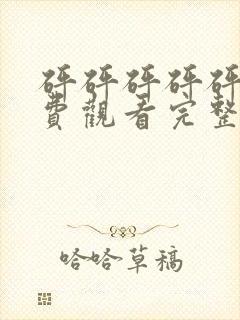 砰砰砰砰砰
費觀看完整
哈哈草稿